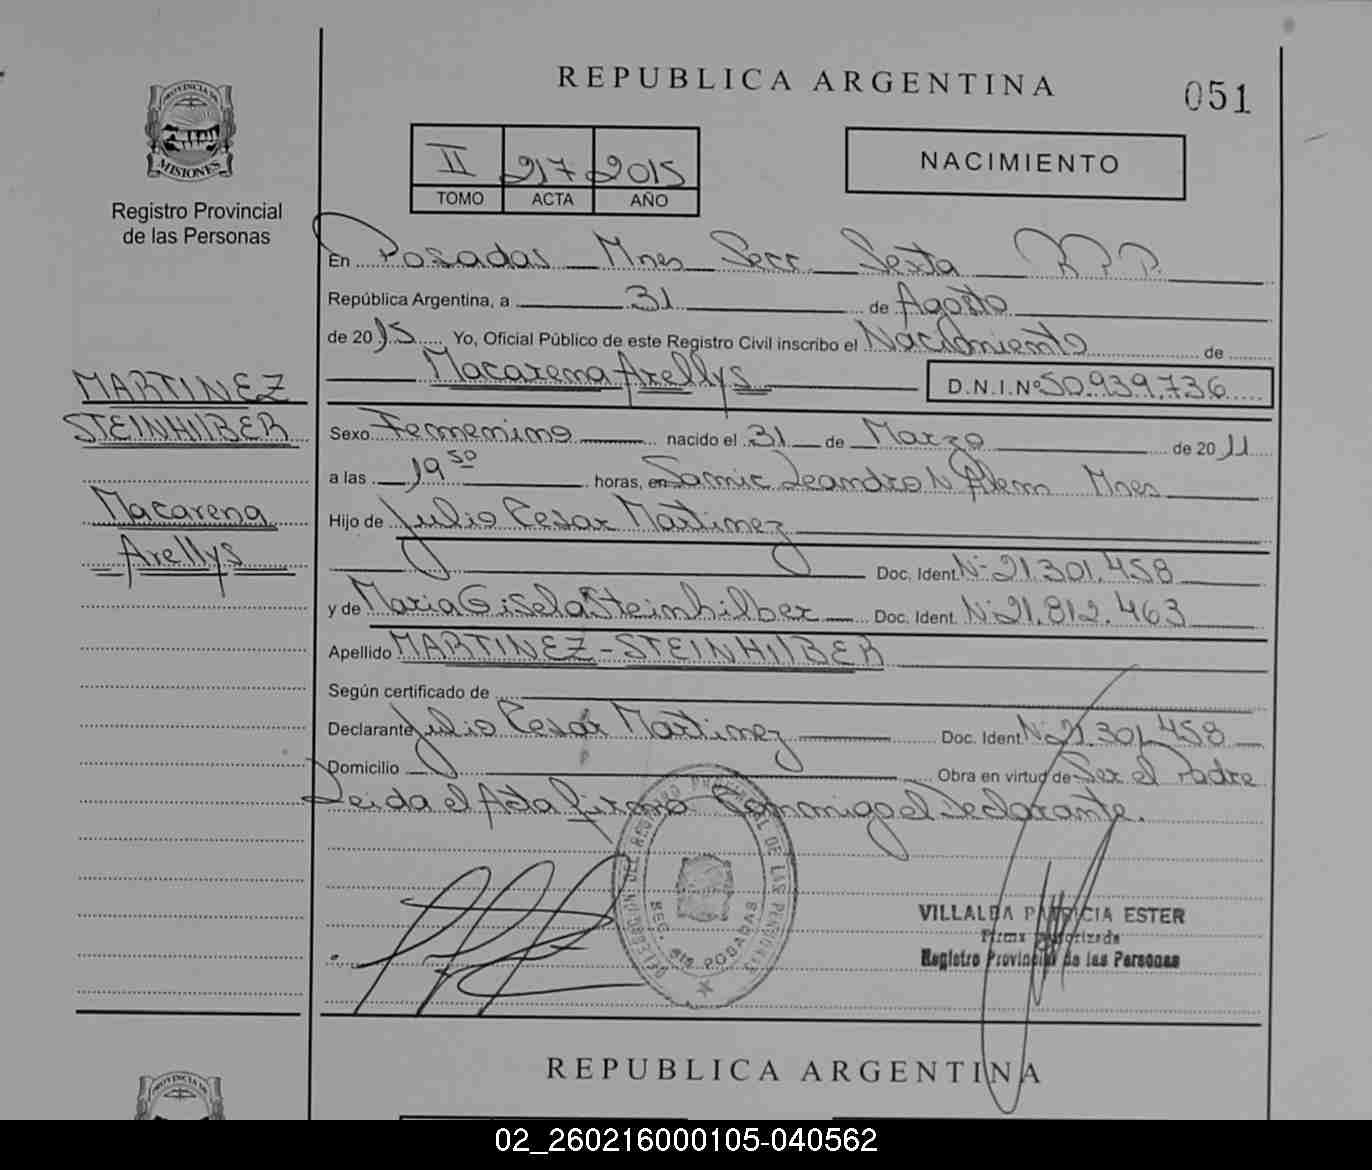 REPUBLICA ARGENTINA
051
PROVINCIA DE
MISIONES
Registro Provincial
de las Personas
II 217 2015
TOMO ACTA AÑO
NACIMIENTO
En Posadas Mnes Secc Sexta R.P.P.
República Argentina, a 31 de Agosto
de 2015 Yo, Oficial Público de este Registro Civil inscribo el Nacimiento de
Macarena Arellys D.N.I.Nº 50.939.736
MARTINEZ
STEINHILBER
Macarena
Arellys
Sexo Femenino nacido el 31 de Marzo de 2011
a las 19 50 horas, en Samic Leandro N Alem Mnes
Hijo de Julio Cesar Martinez
Doc. Ident. Nº 21.301.458
y de Maria Gisela Steinhilber Doc. Ident. Nº 21.812.463
Apellido MARTINEZ - STEINHILBER
Según certificado de
Declarante Julio Cesar Martinez Doc. Ident. Nº 21.301.458
Domicilio Obra en virtud de Ser el Padre
Leida el Acta firma Conmigo el Declarante.
DEL REGISTRO PROVINCIAL DE LAS PERSONAS
SEC. 6ta POSADAS
VILLALBA PATRICIA ESTER
Firma Autorizada
Registro Provincial de las Personas
REPUBLICA ARGENTINA
PROVINCIA DE
02_260216000105-040562